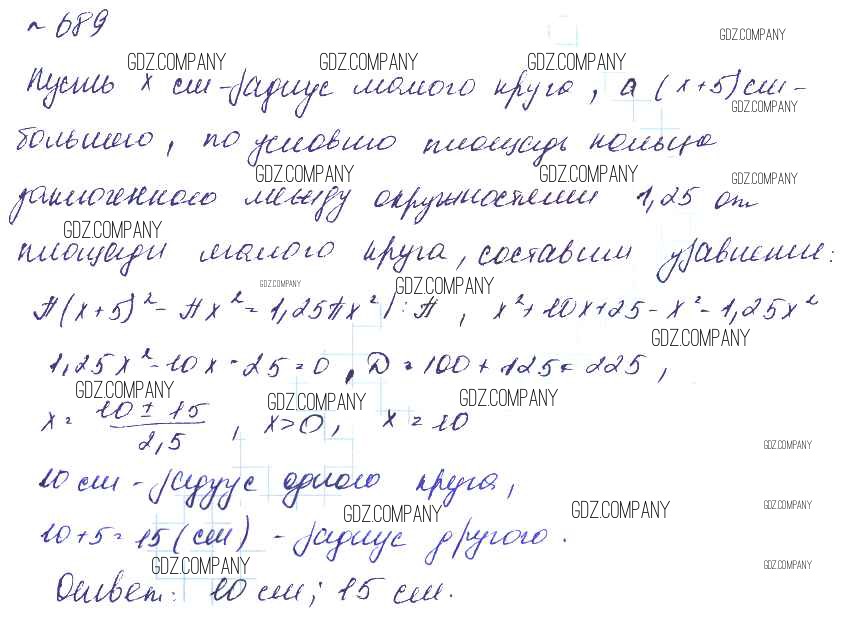 № 689
GDZ.COMPANY
GDZ.COMPANY GDZ.COMPANY GDZ.COMPANY
Пусть x см - радиус малого круга, а (x+5) см -
GDZ.COMPANY
большого, по условию площадь кольца
GDZ.COMPANY GDZ.COMPANY GDZ.COMPANY
заключенного между окружностями 1,25 от
GDZ.COMPANY
площади малого круга, составим уравнение:
GDZ.COMPANY GDZ.COMPANY
π(x+5)² - πx² = 1,25πx² | : π , x² + 10x + 25 - x² - 1,25x²
GDZ.COMPANY
1,25x² - 10x - 25 = 0 , D = 100 + 125 = 225 ,
GDZ.COMPANY GDZ.COMPANY GDZ.COMPANY
x = 10 ± 15 / 2,5 , x > 0 , x = 10
GDZ.COMPANY
10 см - радиус одного круга,
GDZ.COMPANY GDZ.COMPANY GDZ.COMPANY
10 + 5 = 15 (см) - радиус другого.
GDZ.COMPANY GDZ.COMPANY
Ответ: 10 см; 15 см.